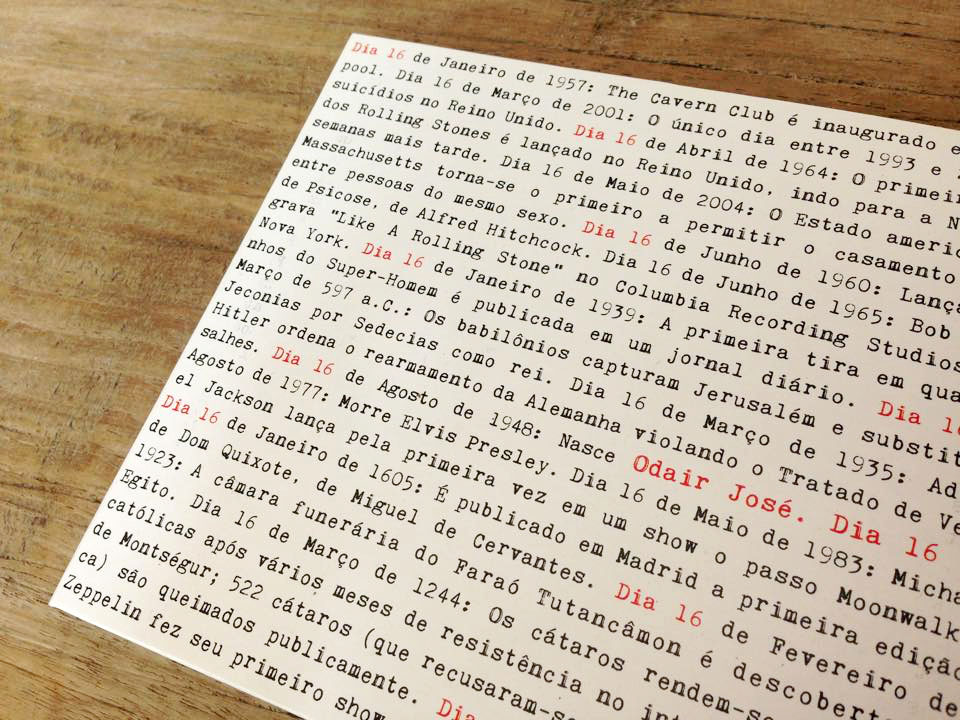 Dia 16 de Janeiro de 1957: The Cavern Club é inaugurado e
pool. Dia 16 de Março de 2001: O único dia entre 1993 e
suicídios no Reino Unido. Dia 16 de Abril de 1964: O primei
dos Rolling Stones é lançado no Reino Unido, indo para a N
semanas mais tarde. Dia 16 de Maio de 2004: O Estado americ
Massachusetts torna-se o primeiro a permitir o casamento
entre pessoas do mesmo sexo. Dia 16 de Junho de 1960: Lança
de Psicose, de Alfred Hitchcock. Dia 16 de Junho de 1965: Bob
grava "Like A Rolling Stone" no Columbia Recording Studios
Nova York. Dia 16 de Janeiro de 1939: A primeira tira em qua
nhos do Super-Homem é publicada em um jornal diário. Dia 16
Março de 597 a.C.: Os babilônios capturam Jerusalém e substit
Jeconias por Sedecias como rei. Dia 16 de Março de 1935: Ad
Hitler ordena o rearmamento da Alemanha violando o Tratado de Ve
salhes. Dia 16 de Agosto de 1948: Nasce Odair José. Dia 16
Agosto de 1977: Morre Elvis Presley. Dia 16 de Maio de 1983: Micha
el Jackson lança pela primeira vez em um show o passo Moonwalk
Dia 16 de Janeiro de 1605: É publicado em Madrid a primeira edição
de Dom Quixote, de Miguel de Cervantes. Dia 16 de Fevereiro de
1923: A câmara funerária do Faraó Tutancâmon é descobert
Egito. Dia 16 de Março de 1244: Os cátaros rendem-se
católicas após vários meses de resistência no int
de Montségur; 522 cátaros (que recusaram-s
ca) são queimados publicamente. Dia
Zeppelin fez seu primeiro show